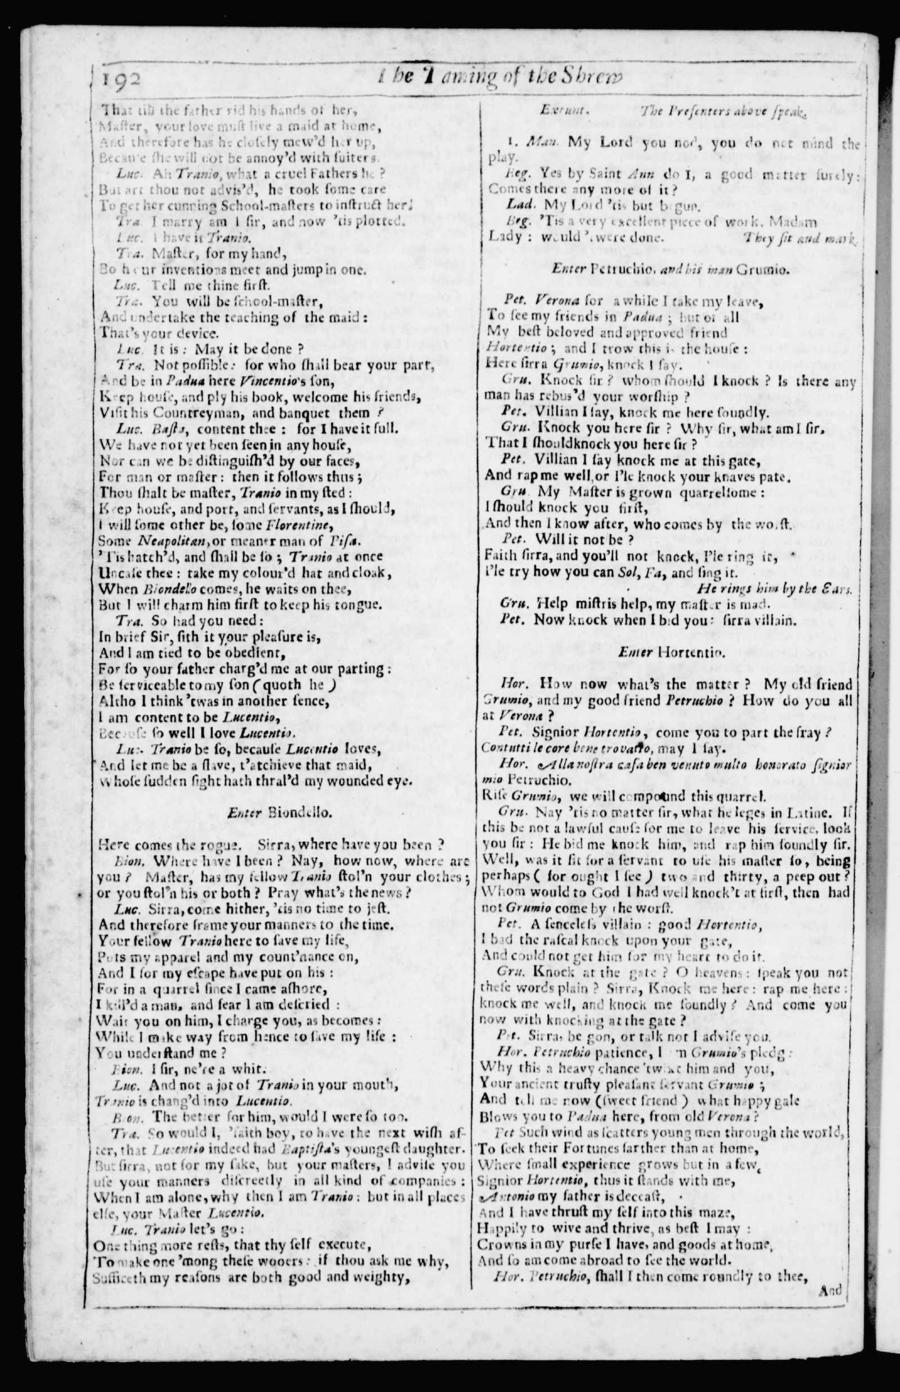 192
The Taming of the Shrew
That till the father rid his hands of her,
Maſter, your love muſt live a maid at home,
And therefore has he cloſely mew'd her up,
Becauſe ſhe will not be annoy'd with ſuiters.
Luc. Ah Tranio, what a cruel Fathers he ?
But art thou not advis'd, he took ſome care
To get her cunning School-maſters to inſtruct her?
Tra. I marry am I ſir, and now 'tis plotted.
Luc. I have it Tranio.
Tra. Maſter, for my hand,
Both our inventions meet and jump in one.
Luc. Tell me thine firſt.
Tra. You will be ſchool-maſter,
And undertake the teaching of the maid :
That's your device.
Luc. It is : May it be done ?
Tra. Not poſſible : for who ſhall bear your part,
And be in Padua here Vincentio's ſon,
Keep houſe, and ply his book, welcome his friends,
Viſit his Countreyman, and banquet them ?
Luc. Baſta, content thee : for I have it full.
We have not yet been ſeen in any houſe,
Nor can we be diſtinguiſh'd by our faces,
For man or maſter : then it follows thus ;
Thou ſhalt be maſter, Tranio in my ſted :
Keep houſe, and port, and ſervants, as I ſhould,
I will ſome other be, ſome Florentine,
Some Neapolitan, or meaner man of Piſa.
'Tis hatch'd, and ſhall be ſo ; Tranio at once
Uncaſe thee : take my colour'd hat and cloak,
When Biondello comes, he waits on thee,
But I will charm him firſt to keep his tongue.
Tra. So had you need :
In brief Sir, ſith it your pleaſure is,
And I am tied to be obedient,
For ſo your father charg'd me at our parting :
Be ſerviceable to my ſon ( quoth he )
Altho I think 'twas in another ſence,
I am content to be Lucentio,
Becauſe ſo well I love Lucentio.
Luc. Tranio be ſo, becauſe Lucentio loves,
And let me be a ſlave, t'atchieve that maid,
Whoſe ſudden ſight hath thral'd my wounded eye.
Enter Biondello.
Here comes the rogue. Sirra, where have you been ?
Bion. Where have I been ? Nay, how now, where are
you ? Maſter, has my fellow Tranio ſtol'n your clothes ;
or you ſtol'n his or both ? Pray what's the news ?
Luc. Sirra, come hither, 'tis no time to jeſt.
And therefore frame your manners to the time.
Your fellow Tranio here to ſave my life,
Puts my apparel and my count'nance on,
And I for my eſcape have put on his :
For in a quarrel ſince I came aſhore,
I kill'd a man, and fear I am deſcried :
Wait you on him, I charge you, as becomes :
While I make way from hence to ſave my life :
You underſtand me ?
Bion. I ſir, ne're a whit.
Luc. And not a jot of Tranio in your mouth,
Tranio is chang'd into Lucentio.
Bion. The better for him, would I were ſo too.
Tra. So would I, 'faith boy, to have the next wiſh af-
ter, that Lucentio indeed had Baptiſta's youngeſt daughter.
But ſirra, not for my ſake, but your maſters, I adviſe you
uſe your manners diſcreetly in all kind of companies :
When I am alone, why then I am Tranio : but in all places
elſe, your Maſter Lucentio.
Luc. Tranio let's go :
One thing more reſts, that thy ſelf execute,
To make one 'mong theſe wooers : if thou ask me why,
Sufficeth my reaſons are both good and weighty,
Exeunt. The Preſenters above ſpeak.
1. Man. My Lord you nod, you do not mind the
play.
Beg. Yes by Saint Ann do I, a good matter ſurely :
Comes there any more of it ?
Lad. My Lord 'tis but begun.
Beg. 'Tis a very excellent piece of work, Madam
Lady : would 'twere done. They ſit and mark.
Enter Petruchio, and his man Grumio.
Pet. Verona for a while I take my leave,
To ſee my friends in Padua ; but of all
My beſt beloved and approved friend
Hortentio ; and I trow this is the houſe :
Here ſirra Grumio, knock I ſay.
Gru. Knock ſir ? whom ſhould I knock ? Is there any
man has rebus'd your worſhip ?
Pet. Villian I ſay, knock me here ſoundly.
Gru. Knock you here ſir ? Why ſir, what am I ſir,
That I ſhouldknock you here ſir ?
Pet. Villian I ſay knock me at this gate,
And rap me well, or I'le knock your knaves pate.
Gru. My Maſter is grown quarrelſome :
I ſhould knock you firſt,
And then I know after, who comes by the worſt.
Pet. Will it not be ?
Faith ſirra, and you'll not knock, I'le ring it,
I'le try how you can Sol, Fa, and ſing it.
He rings him by the Ears.
Gru. Help miſtris help, my maſter is mad.
Pet. Now knock when I bid you : ſirra villain.
Enter Hortentio.
Hor. How now what's the matter ? My old friend
Grumio, and my good friend Petruchio ? How do you all
at Verona ?
Pet. Signior Hortentio, come you to part the fray ?
Contutti le core bene trovatto, may I ſay.
Hor. Alla noſtra caſa ben venuto multo honorato ſignior
mio Petruchio.
Riſe Grumio, we will compound this quarrel.
Gru. Nay 'tis no matter ſir, what he leges in Latine. If
this be not a lawful cauſe for me to leave his ſervice, look
you ſir : He bid me knock him, and rap him ſoundly ſir.
Well, was it fit for a ſervant to uſe his maſter ſo, being
perhaps ( for ought I ſee ) two and thirty, a peep out ?
Whom would to God I had well knock't at firſt, then had
not Grumio come by the worſt.
Pet. A ſenceleſs villain : good Hortentio,
I bad the raſcal knock upon your gate,
And could not get him for my heart to do it.
Gru. Knock at the gate ? O heavens : ſpeak you not
theſe words plain ? Sirra, Knock me here : rap me here :
knock me well, and knock me ſoundly ? And come you
now with knocking at the gate ?
Pet. Sirra, be gon, or talk not I adviſe you.
Hor. Petruchio patience, I 'm Grumio's pledg :
Why this a heavy chance 'twixt him and you,
Your ancient truſty pleaſant ſervant Grumio ;
And tell me now (ſweet friend ) what happy gale
Blows you to Padua here, from old Verona ?
Pet Such wind as ſcatters young men through the world,
To ſeek their Fortunes farther than at home,
Where ſmall experience grows but in a few,
Signior Hortentio, thus it ſtands with me,
Antonio my father is deceaſt,
And I have thruſt my ſelf into this maze,
Happily to wive and thrive, as beſt I may :
Crowns in my purſe I have, and goods at home,
And ſo am come abroad to ſee the world.
Hor. Petruchio, ſhall I then come roundly to thee,
And